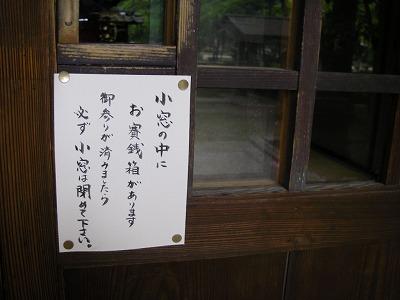 小窓の中に
お賽銭箱があります
御参りが済みましたら
必ず小窓は閉めて下さい。